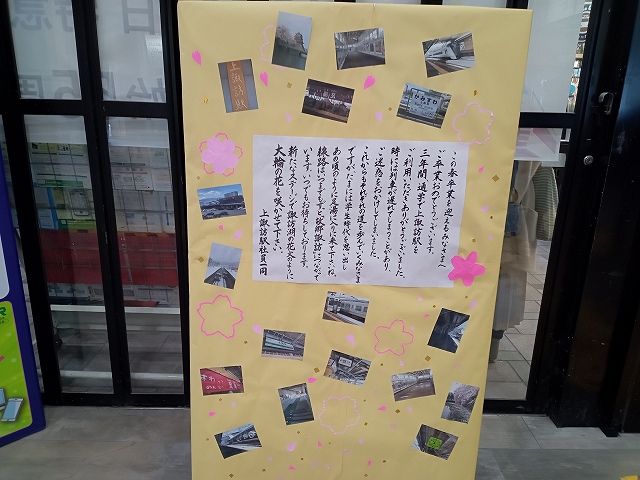 上諏訪駅
かみすわ
この春卒業を迎えるみなさまへ
ご卒業おめでとうございます。
三年間、通学で上諏訪駅を
ご利用いただきありがとうございました。
時には列車が遅れてしまうことがあり、
ご迷惑をおかけしてしまいました。
これからもそれぞれの道を歩んでいくみなさま
ですが、たまには学生時代を思い出し
あの頃のように足湯に入りに来て下さいね。
線路はいつまでもずっと故郷諏訪につながって
います。いつでもお待ちしております。
新たなステージで諏訪湖の花火のように
大輪の花を咲かせて下さい
上諏訪駅社員一同